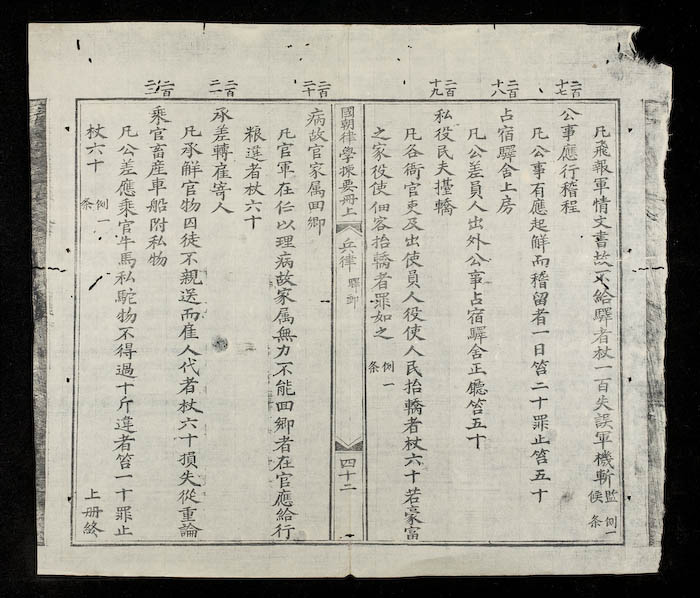 凡飛報軍情文書故不給驛者杖一百失誤軍機斬監候 例一条
二百十七
公事應行稽程
凡公事有應起解而稽留者一日笞二十罪止笞五十
二百十八
占宿驛舍上房
凡公差員人出外公事占宿驛舍正廳笞五十
二百十九
私役民夫擡轎
凡各衙官吏及出使員人役使人民抬轎者杖六十若豪富
之家役使佃客抬轎者罪如之 例一条
國朝律學揀要册上 兵律 驛郵 四十二
二百二十
病故官家属囬鄉
凡官軍在仁以理病故家属無力不能囬鄉者在官應給行
粮違者杖六十
二百二一
承差轉雇寄人
凡承解官物囚徒不親送而雇人代者杖六十損失從重論
二百二二
乘官畜産車船附私物
凡公差應乘官牛馬私駝物不得過十斤違者笞一十罪止
杖六十 例一条 上册終